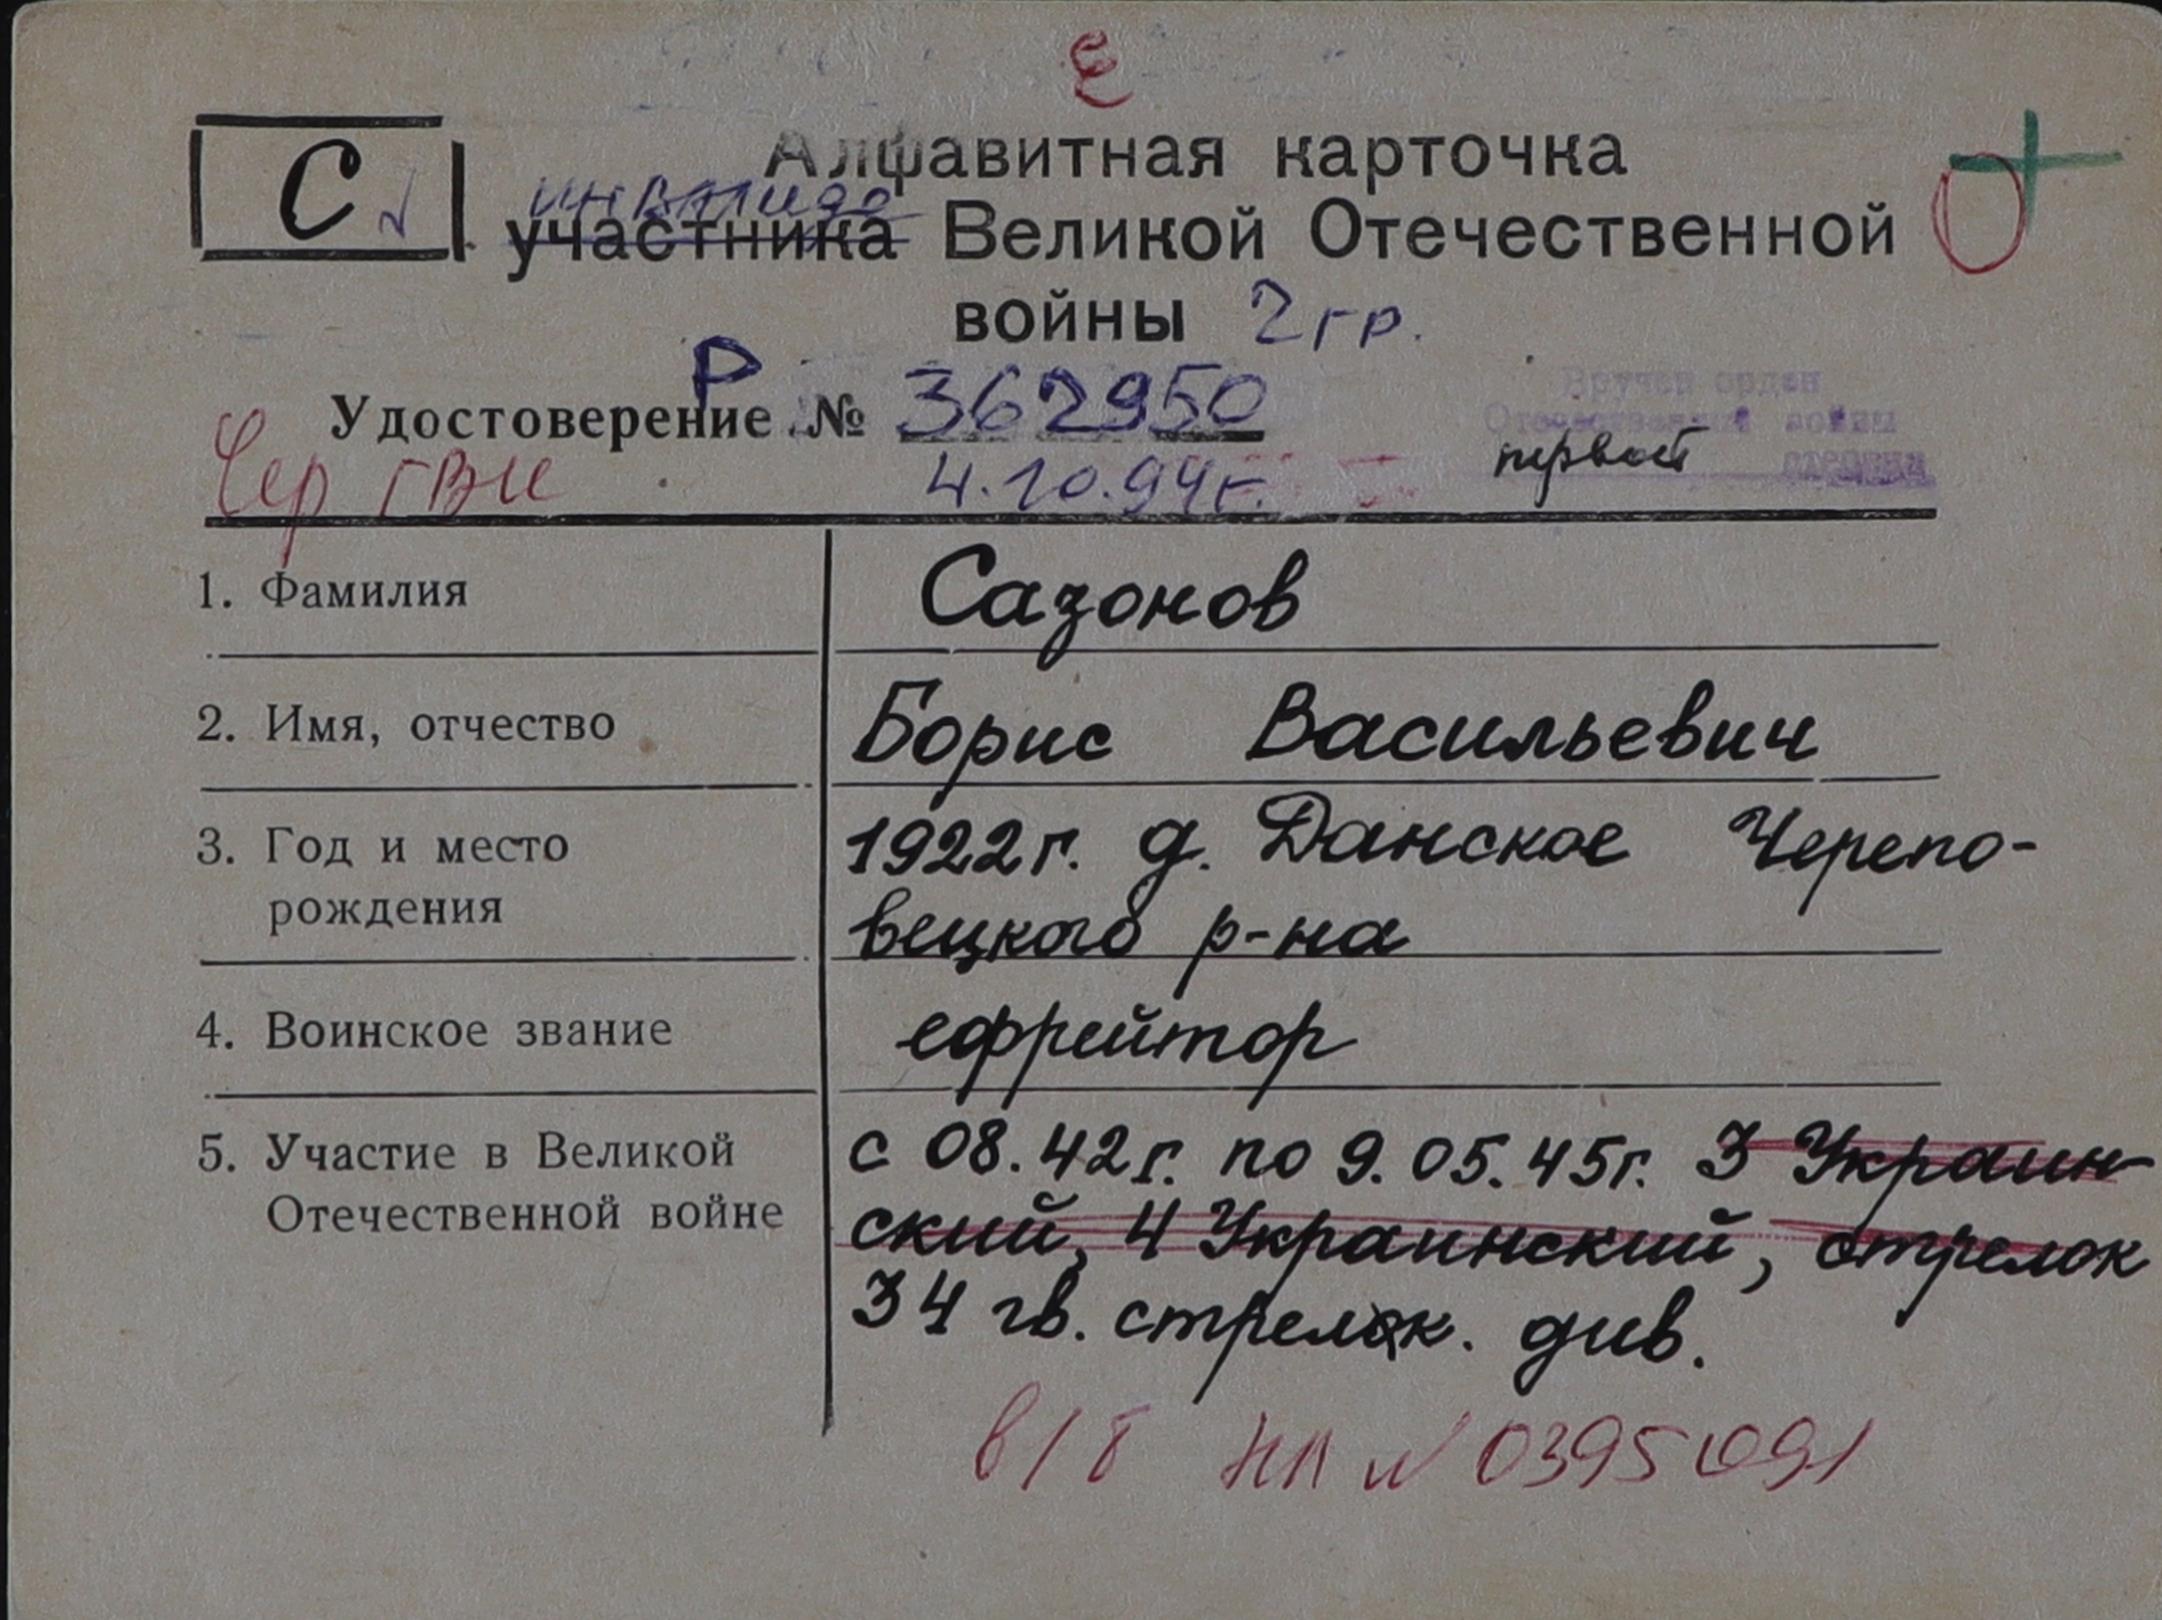 Е
С
Алфавитная карточка
инвалида
участника Великой Отечественной
войны 2 гр.
Удостоверение Р № 362950
Вручен орден
Отечественной войны
первой степени
Чер ГВК 4.10.94г.
1. Фамилия Сазонов
2. Имя, отчество Борис Васильевич
3. Год и место 1922г. д. Данское Черепо-
рождения вецкого р-на
4. Воинское звание ефрейтор
5. Участие в Великой с 08.42г. по 9.05.45г. 3 Украин-
Отечественной войне ский, 4 Украинский, стрелок
34 гв. стрелк. див.
в/б НЛ № 0395091